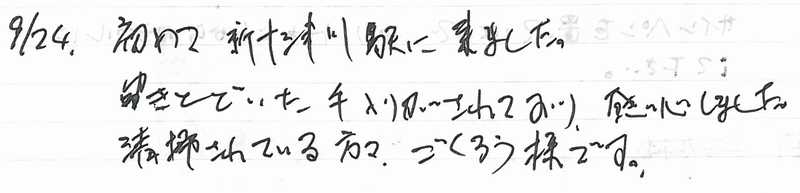 9/24. 初めて新十津川駅に来ました。
ゆきとどいた手入れがされており、感心しました。
清掃されている方々、ごくろう様です。